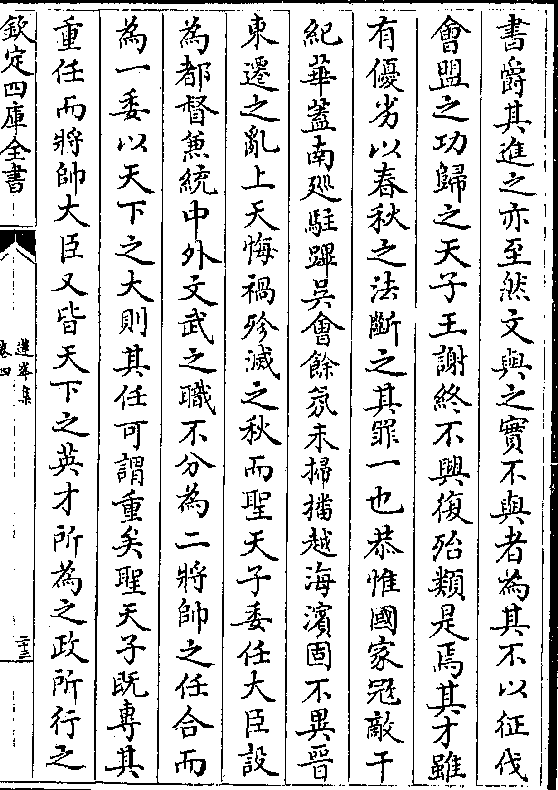 書爵其進之亦至然文與之實不與者為其不以征伐
會盟之功歸之天子王謝終不興復殆類是焉其才雖
有優劣以春秋之法斷之其罪一也恭惟國家冦敵干
紀華蓋南廵駐蹕吳會餘氛未掃播越海濱固不異晉
東遷之亂上天悔禍殄滅之秋而聖天子委任大臣設
為都督兼統中外文武之職不分為二將帥之任合而
為一委以天下之大則其任可謂重矣聖天子既專其
重任而將帥大臣又皆天下之英才所為之政所行之
欽定四庫全書
蓮峯集
卷四
二十三